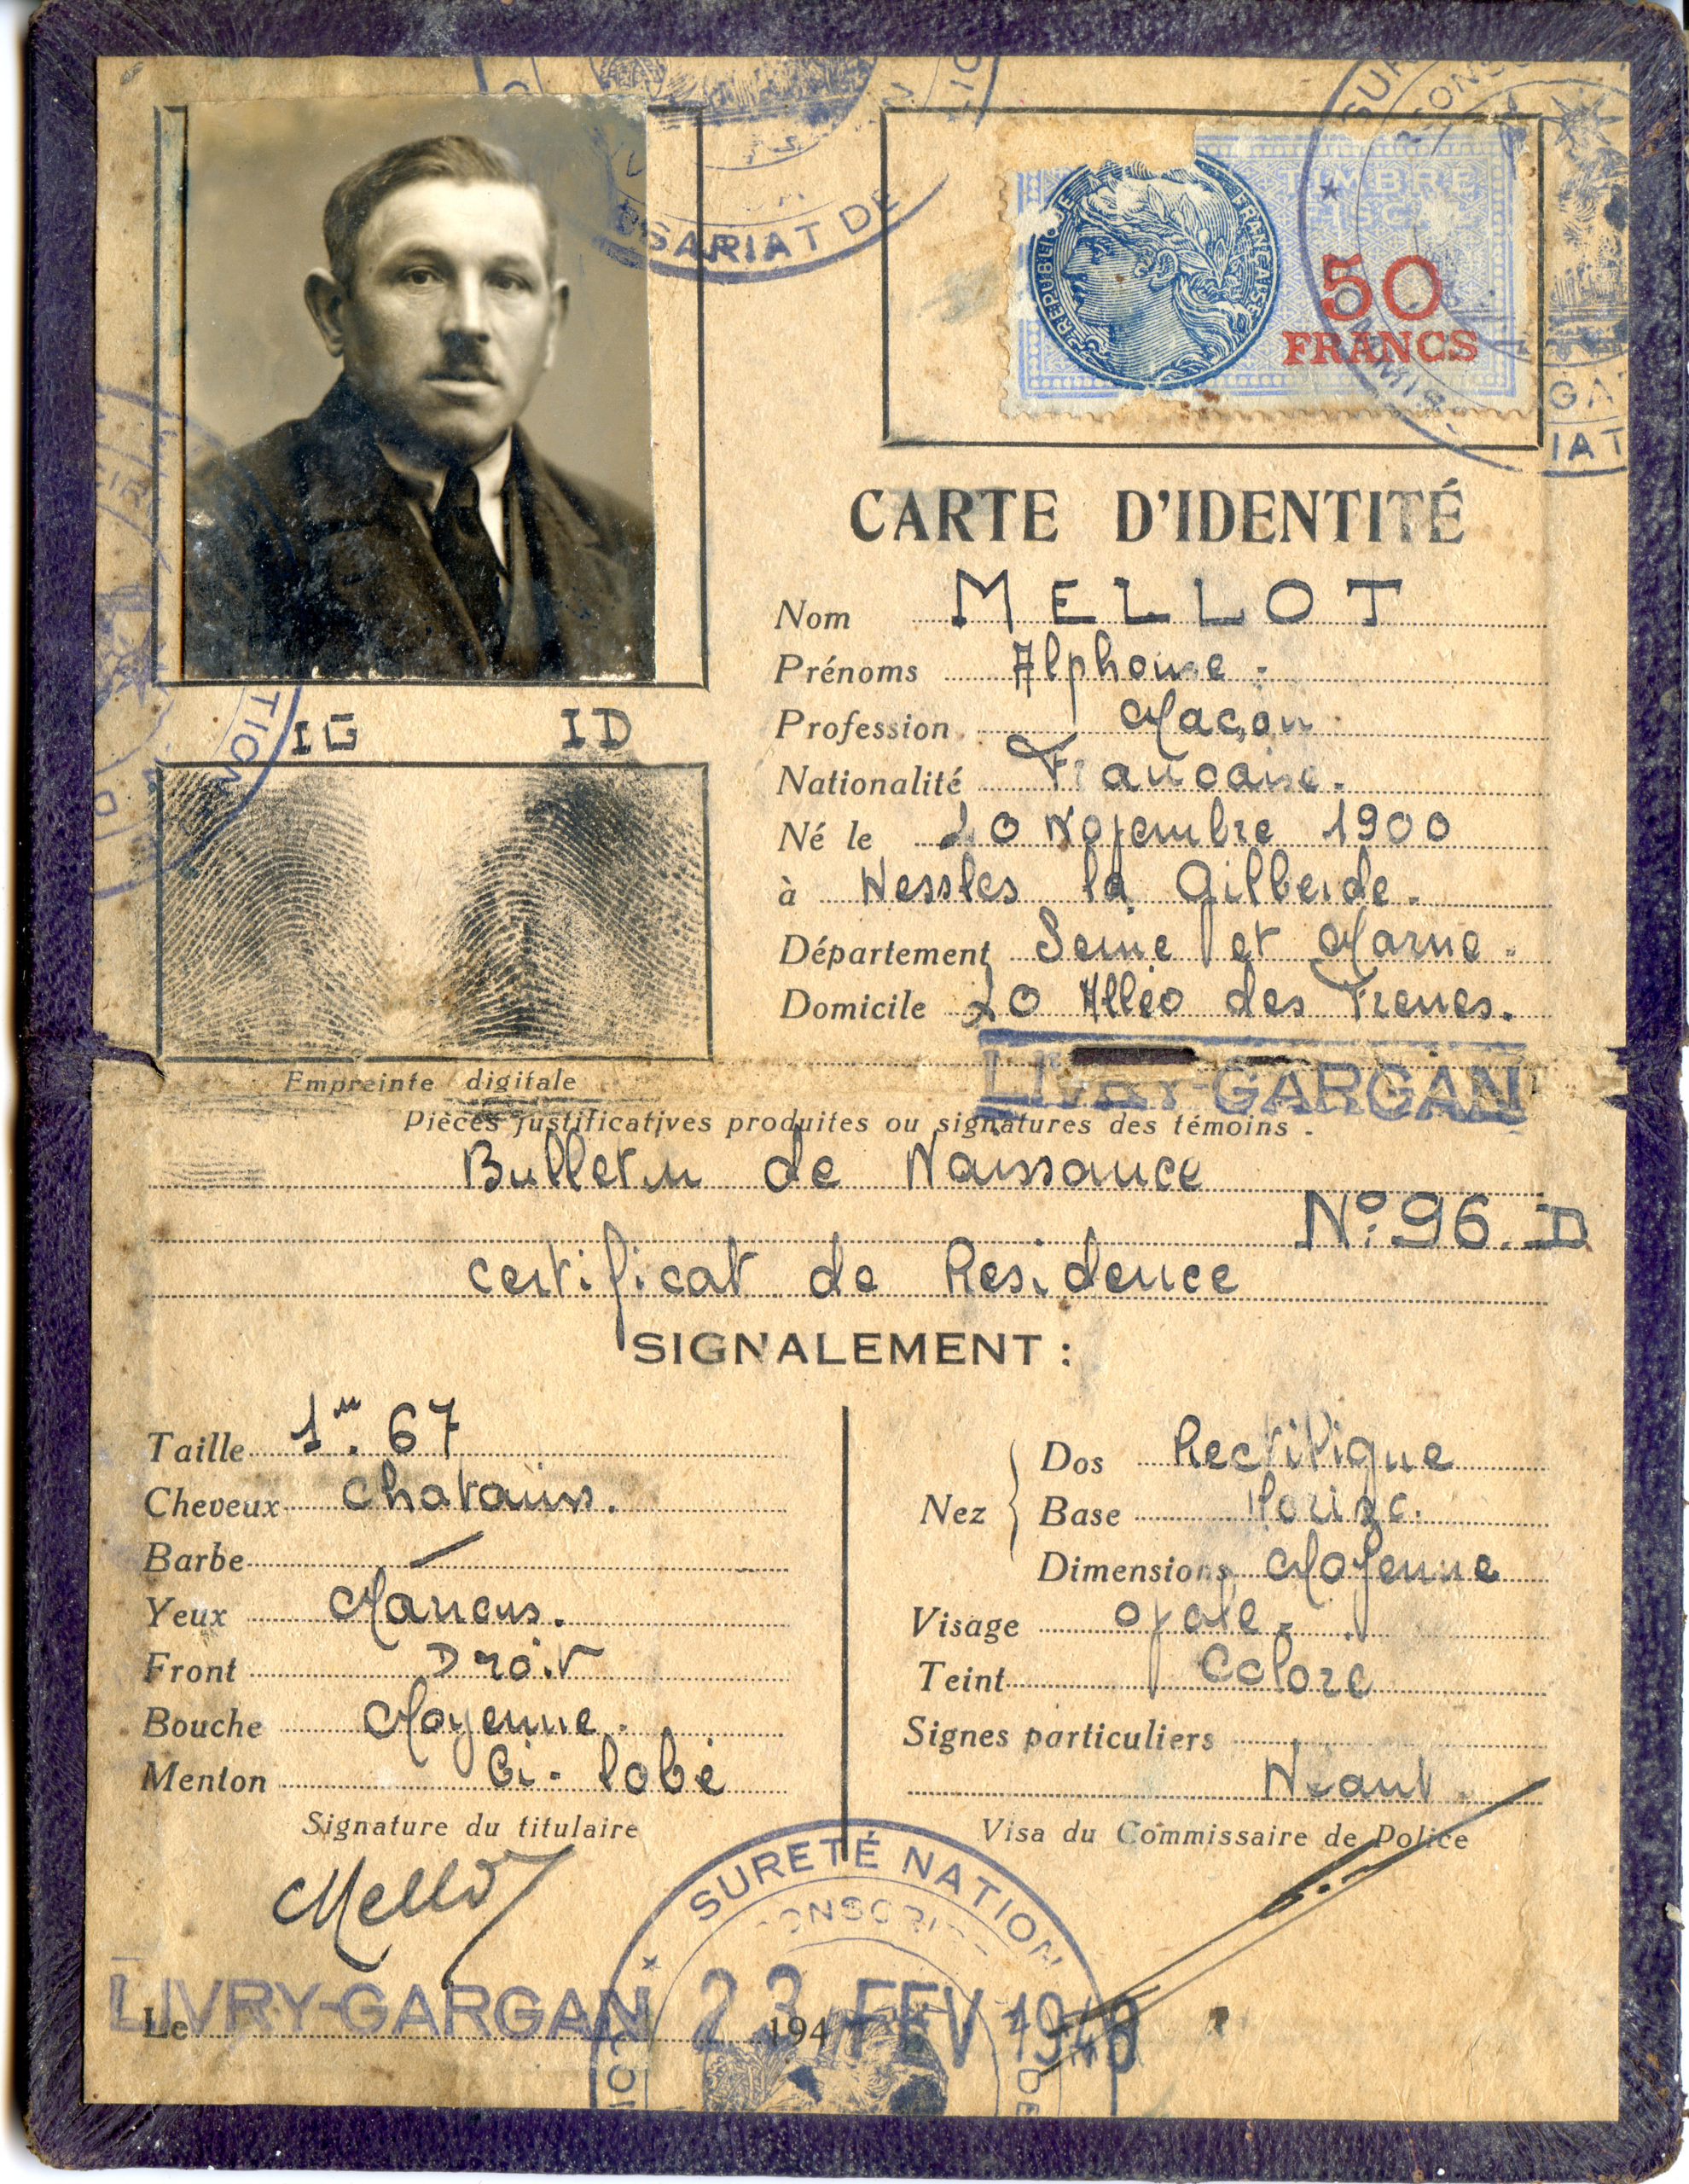 RÉPUBLIQUE FRANÇAISE
TIMBRE
FISCAL
50
FRANCS
SARIAT DE
CARTE D'IDENTITÉ
Nom MELLOT
Prénoms Alphonse.
Profession Maçon
Nationalité Francaise.
Né le 20 Novembre 1900
à Nesles la Gilberde.
Département Seine et Marne.
Domicile 20 Allée des Frenes.
LIVRY-GARGAN
IG ID
Empreinte digitale
Pièces justificatives produites ou signatures des témoins.
Bulletin de Naissance
N° 96. D
Certificat de Residence
SIGNALEMENT :
Taille 1m. 67
Cheveux chatains.
Barbe —
Yeux Marrons.
Front Droit
Bouche Moyenne.
Menton Bi-lobé
Nez
Dos Rectiligne
Base Horizc.
Dimensions Moyenne
Visage Ovale.
Teint Coloré
Signes particuliers
Néant.
Signature du titulaire
Mellot
Visa du Commissaire de Police
SURETÉ NATION
LIVRY-GARGAN
Le 194
23 FEV 1943